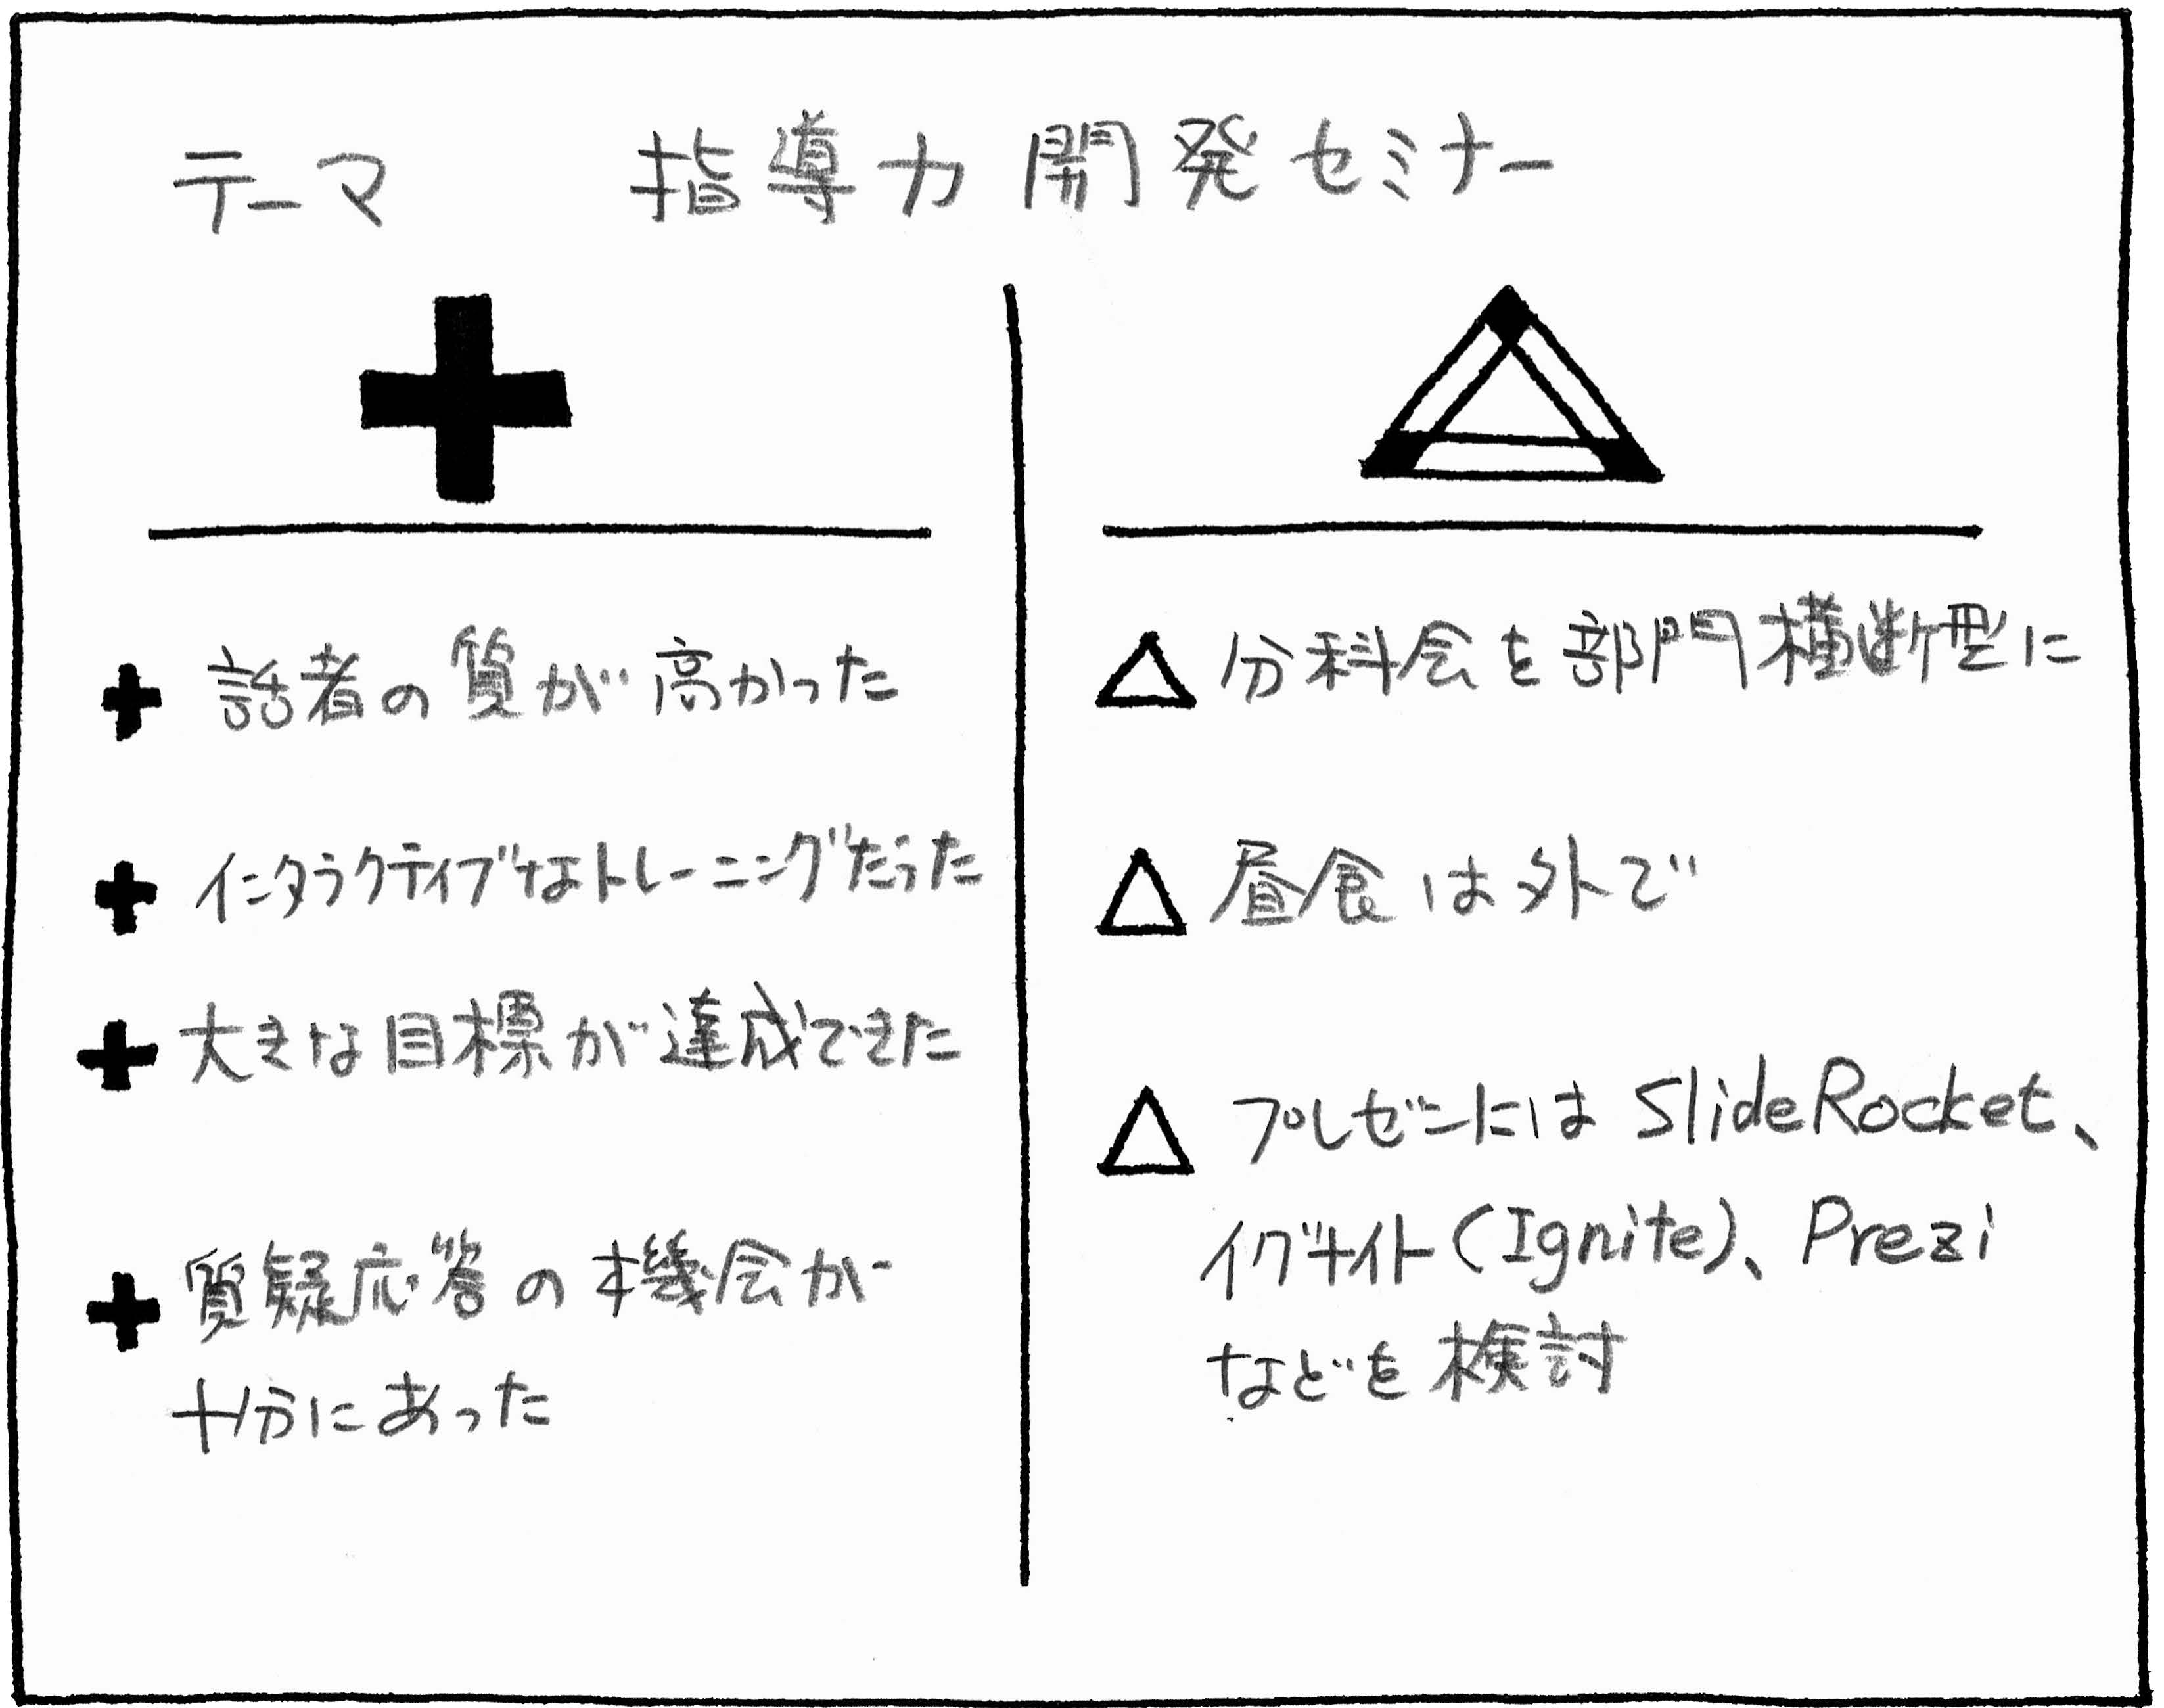 テーマ 指導力開発セミナー
話者の質が高かった
インタラクティブなトレーニングだった
大きな目標が達成できた
質疑応答の機会が
十分にあった
分科会を部門横断型に
昼食は外で
プレゼンには SlideRocket、
イグナイト(Ignite)、Prezi
などを検討